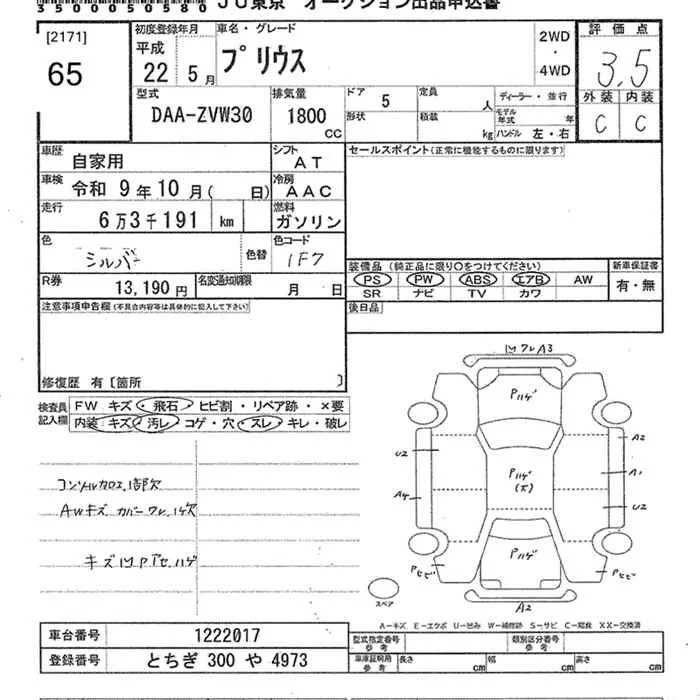 35000050580 JU東京 オークション出品申込書
[2171]
65
初度登録年月
平成
22 5月
車名・グレード
プリウス
2WD
・
4WD
評価点
3.5
外装 内装
C C
型式
DAA-ZVW30
排気量
1800
CC
ドア 5
形状
定員 人
積載 kg
ディーラー・並行
モデル年式 年
ハンドル 左・右
車歴 自家用
シフト AT
車検 令和 9年10月( 日)
冷房 AAC
走行 6万3千191 km
燃料 ガソリン
色 シルバー 色替
色コード 1F7
R券 13,190円
名変通知期限 月 日
セールスポイント(正常に機能するものに限ります)
装備品(純正品に限り○をつけてください)
PS PW ABS エアB AW
SR ナビ TV カワ
新車保証書
有・無
後日品
注意事項申告欄(不具合内容等は具体的に記入して下さい)
修復歴 有〔箇所 〕
検査員記入欄
FW キズ・飛石・ヒビ割・リペア跡・×要
内装 キズ・汚レ・コゲ・穴・スレ・キレ・破レ
コンソールカロエ、1部欠
AWキズ カバーワレ、1ヶ欠
A3
Pハゲ
Pハゲ
(大)
Pハゲ
U2
A4
A2
A1
U2
Pヒビ
Pヒビ
A2
スペア
A－キズ E－エクボ U－凹み W－補修跡 S－サビ C－腐食 XX－交換済
車台番号 1222017
登録番号 とちぎ 300 や 4973
型式指定番号
参考
類別区分番号
参考
車庫証明用
参考
長さ cm 幅 cm 高さ cm